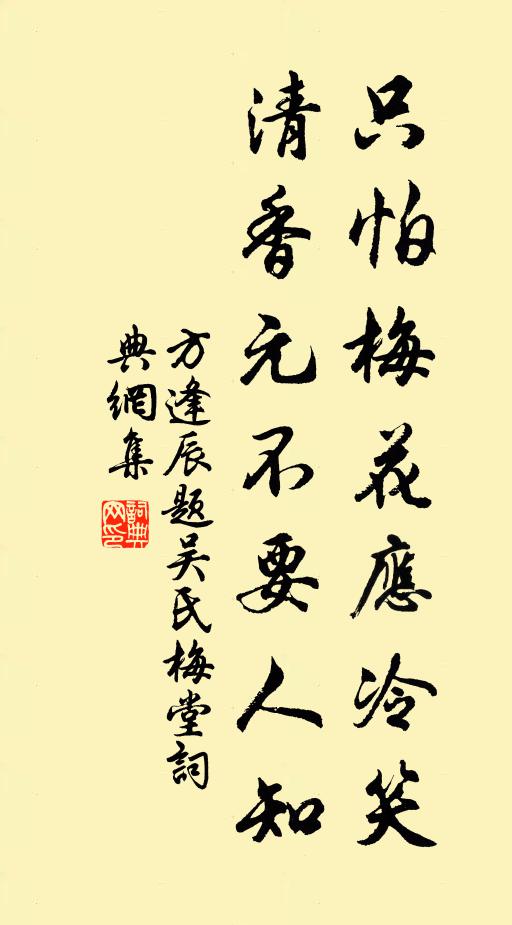 只怕梅花應冷笑
清香元不要人知
方逢辰題吴氏梅堂詞
典網集
詞典
网印